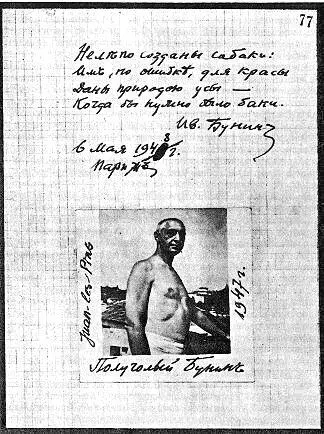 77
Нелѣпо созданы собаки:
Имъ, по ошибкѣ, для красы
Даны природою усы —
Когда бы нужно было баки.
Ив. Бунинъ
6 мая 1948 г.
Парижъ
Juan-les-Pins
1947 г.
Полуголый Бунинъ